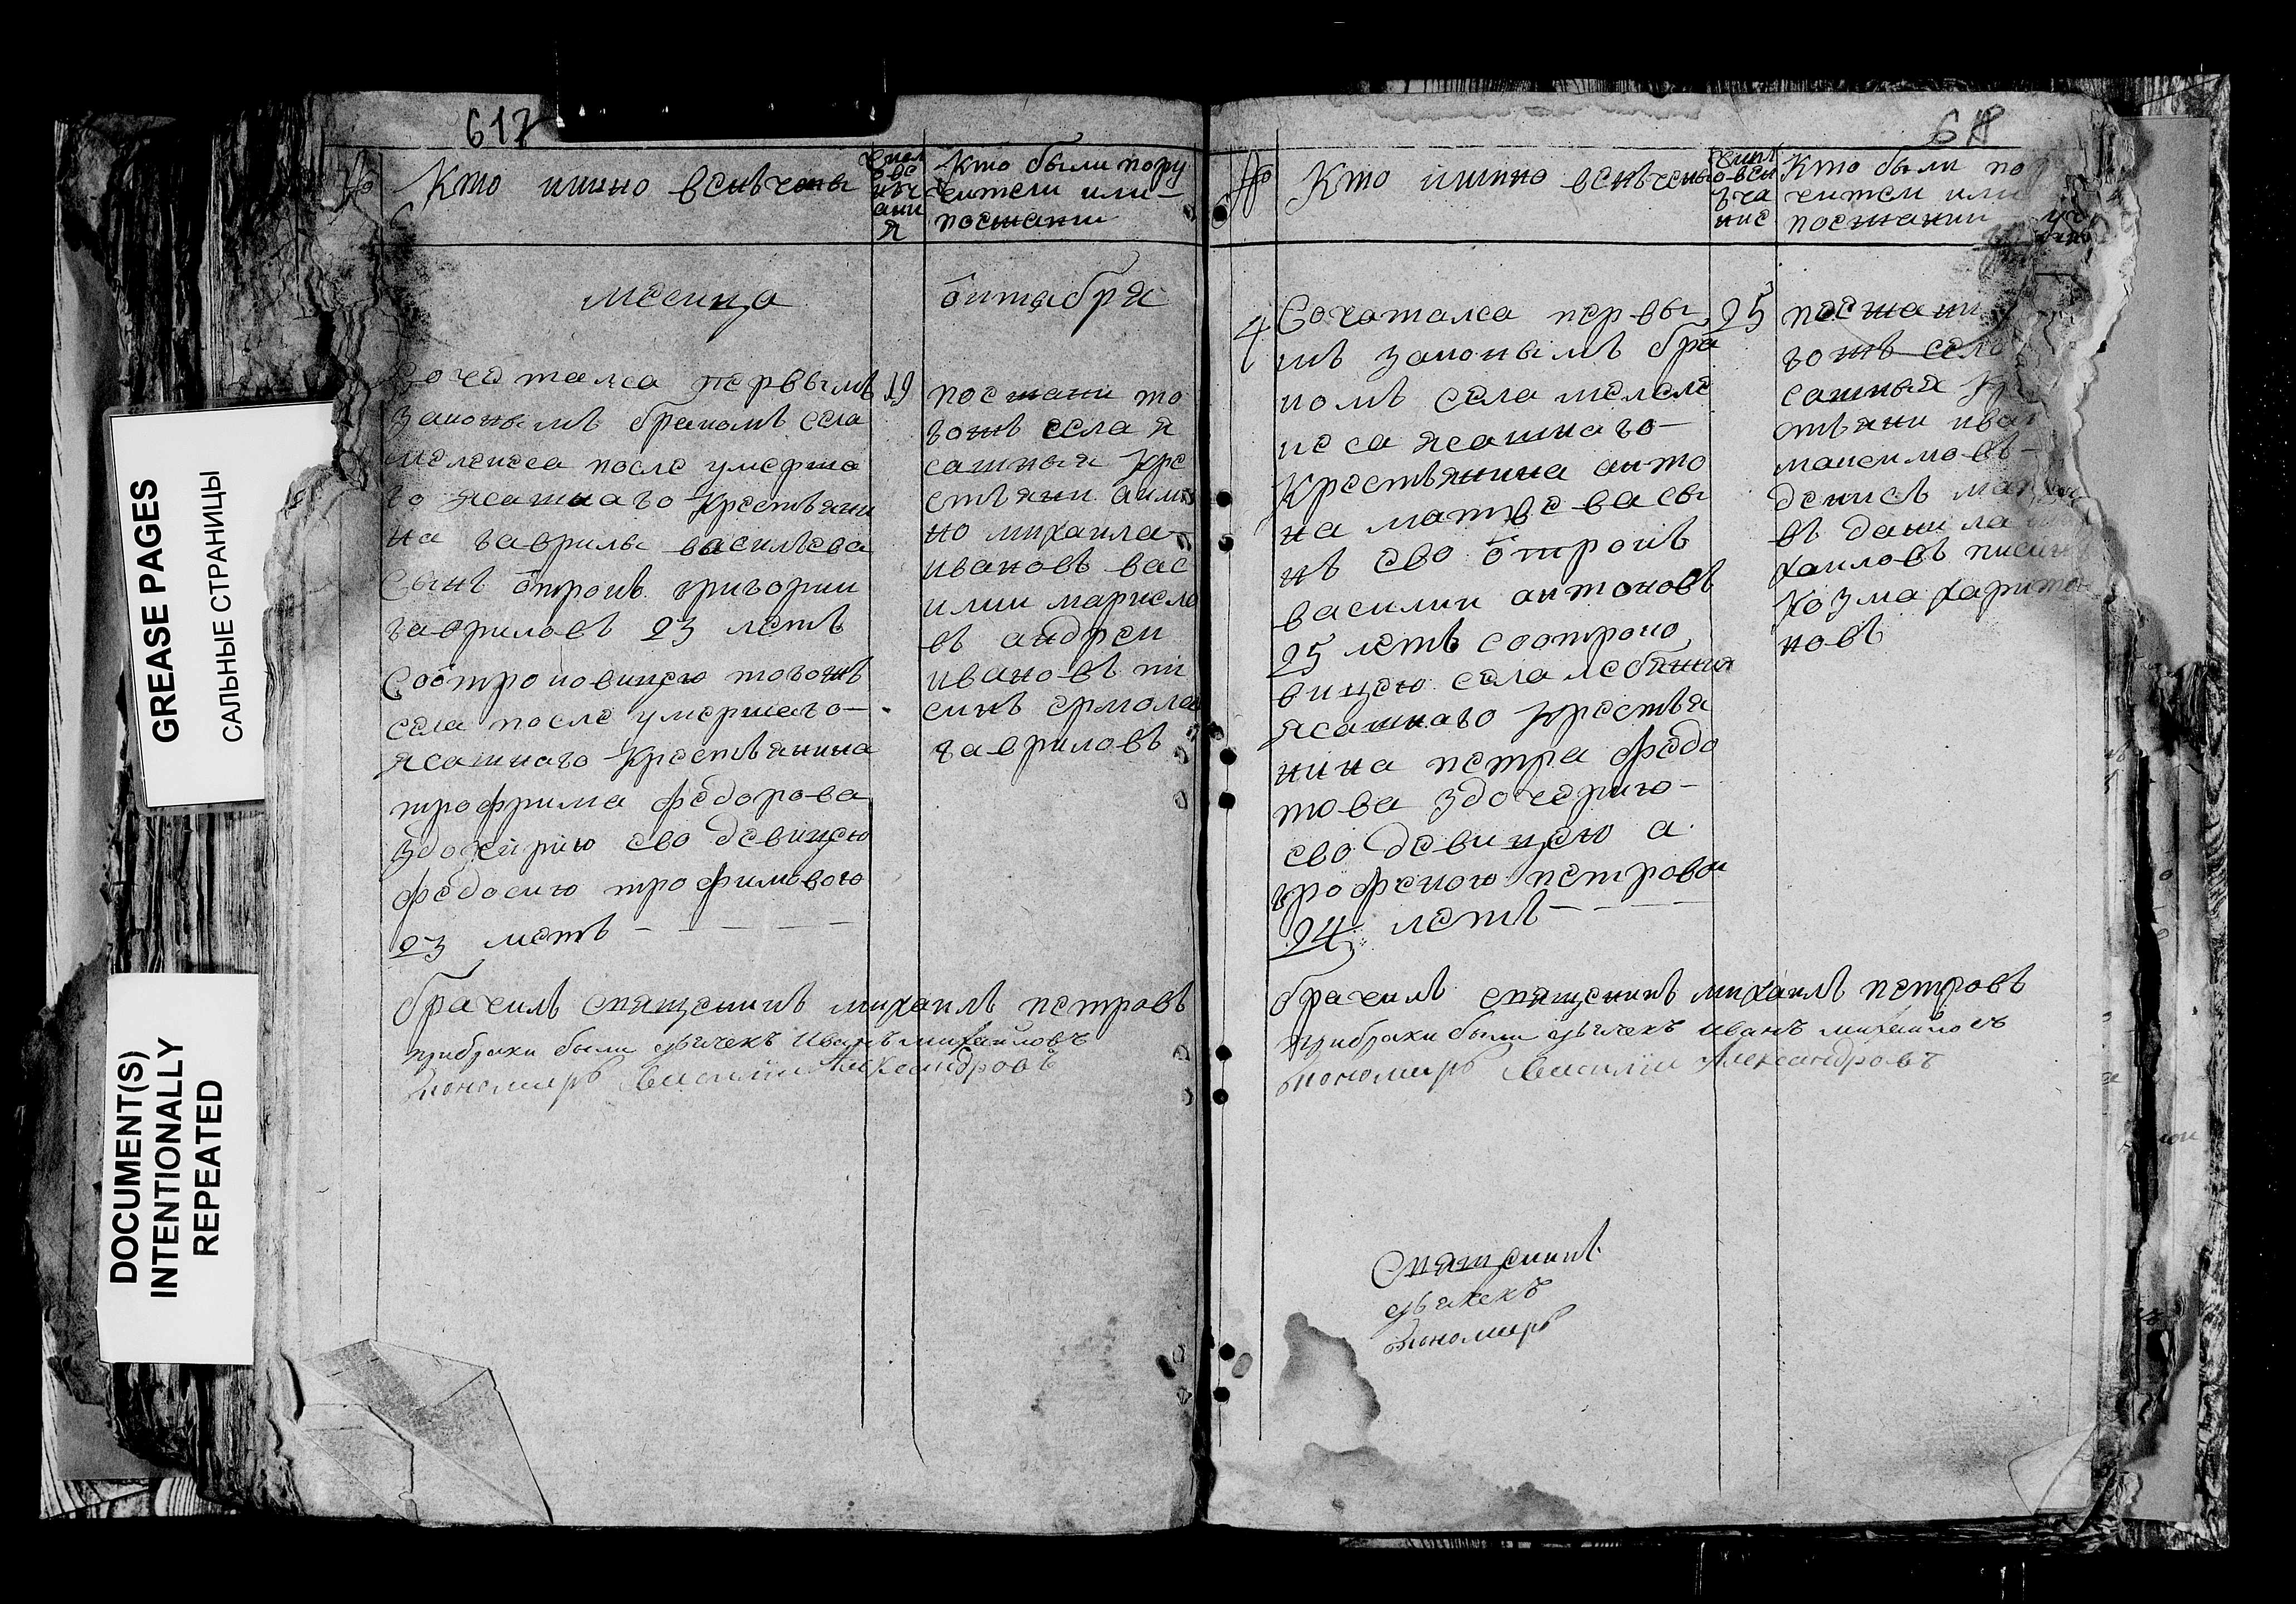 GREASE PAGES
САЛЬНЫЕ СТРАНИЦЫ
DOCUMENT(S)
INTENTIONALLY
REPEATED
617
№
Кто имяно всвѣчены
числ
о вс
нѣч
ани
я
Кто были пору
чители или
поезжани
месица
октября
Сочетался первымъ
законымъ бракомъ села
мелекеса после умерша
го ясашнаго крестьяни
на гаврилы васильева
сынъ отрокъ григории
гавриловъ 23 летъ
соотроковицею тогожъ
села после умершаго
ясашнаго крестьянина
трофрима федорова
здочерию ево девицею
федосию трофимовою
23 летъ
19
поезжани то
гожъ села я
сашныя кре
стьяни аки
но михаила
ивановъ вас
илии маркело
въ андреи
ивановъ пи
сикъ ермола
гавриловъ
брачилъ священникъ михаилъ петровъ
прибраки были дьячекъ Иванъ михаиловъ
пономарь Василии Александровъ
618
№
Кто имяно всвѣчены
числ
о всн
ѣча
ние
Кто были по
чители или
поезжании
4
Сочатался первы
мъ законымъ бра
комъ села мелеке
иса ясашнаго
крестьянина анто
на матвеева сы
нъ ево отрокъ
василии антоновъ
25 летъ соотроко
вицею села лебяжия
ясашнаго крестья
нина петра федо
това здочерию
ево девицею а
грофеною петрова
24 летъ
25
поезжани
гожъ село
сашныя кр
стьяни ива
максимовъ
денисъ ма
въ данила ми
хаиловъ писикъ
козма харито
новъ
брачилъ священикъ михаилъ петровъ
прибраки были дьячекъ иванъ михаиловъ
пономарь Василии Александровъ
Священикъ
дьячекъ
пономарь